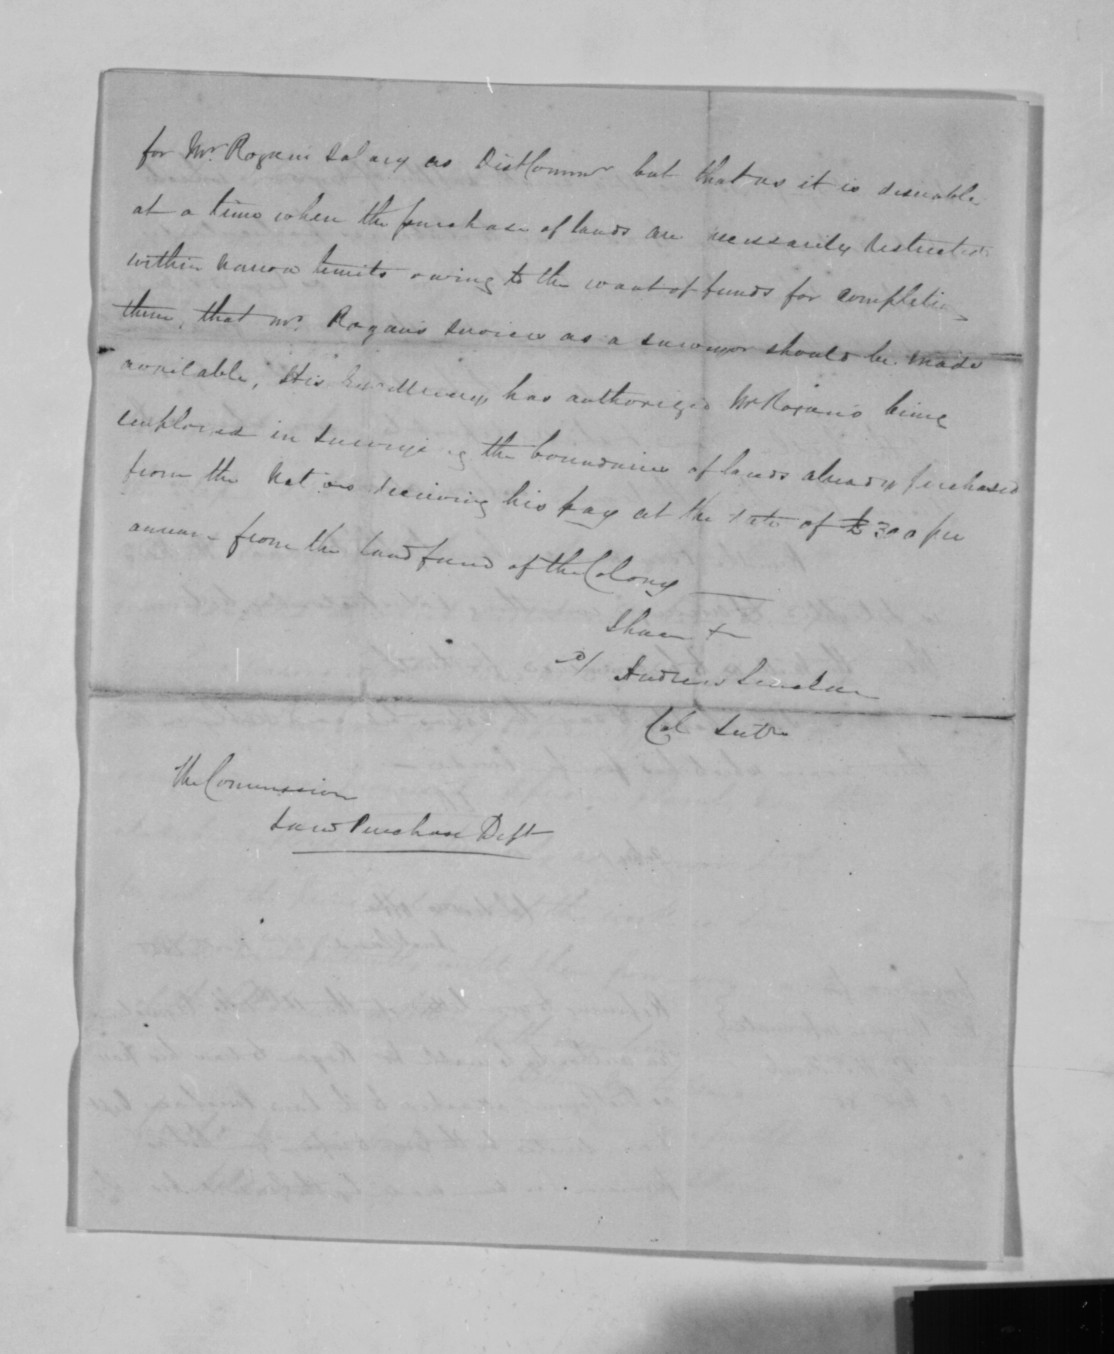 for Mr. Rogans Salary as Dist Commr but that as it is desirable
at a time when the purchase of lands are necessarily restricted
within narrow limits owing to the want of funds for completing
them, that Mr. Rogan's services as a surveyor should be made
available, His Excellency has authorized Mr Rogan's being
employed in surveying the boundaries of lands already purchased
from the Natives receiving his pay at the rate of £300 per
annum from the Land fund of the Colony
I have &c
s/ Andrew Sinclair
Col Secty
The Commission
Land Purchase Dept